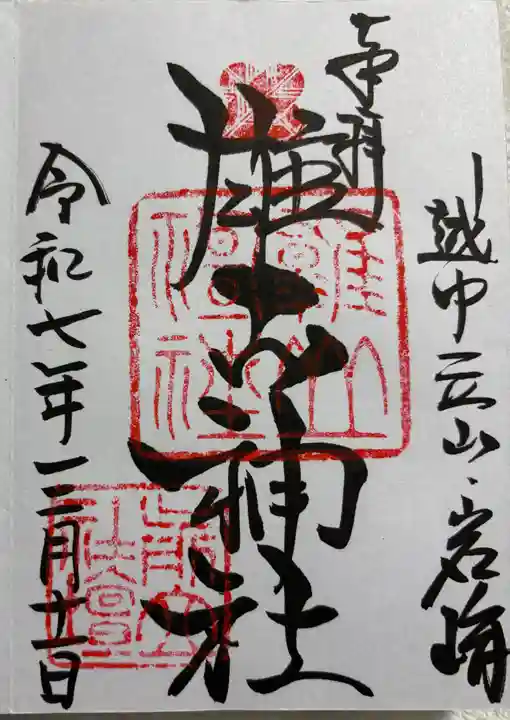 越中立山・岩峅
奉拝
雄山神社
雄山
神社
前立
社壇
令和七年三月 日